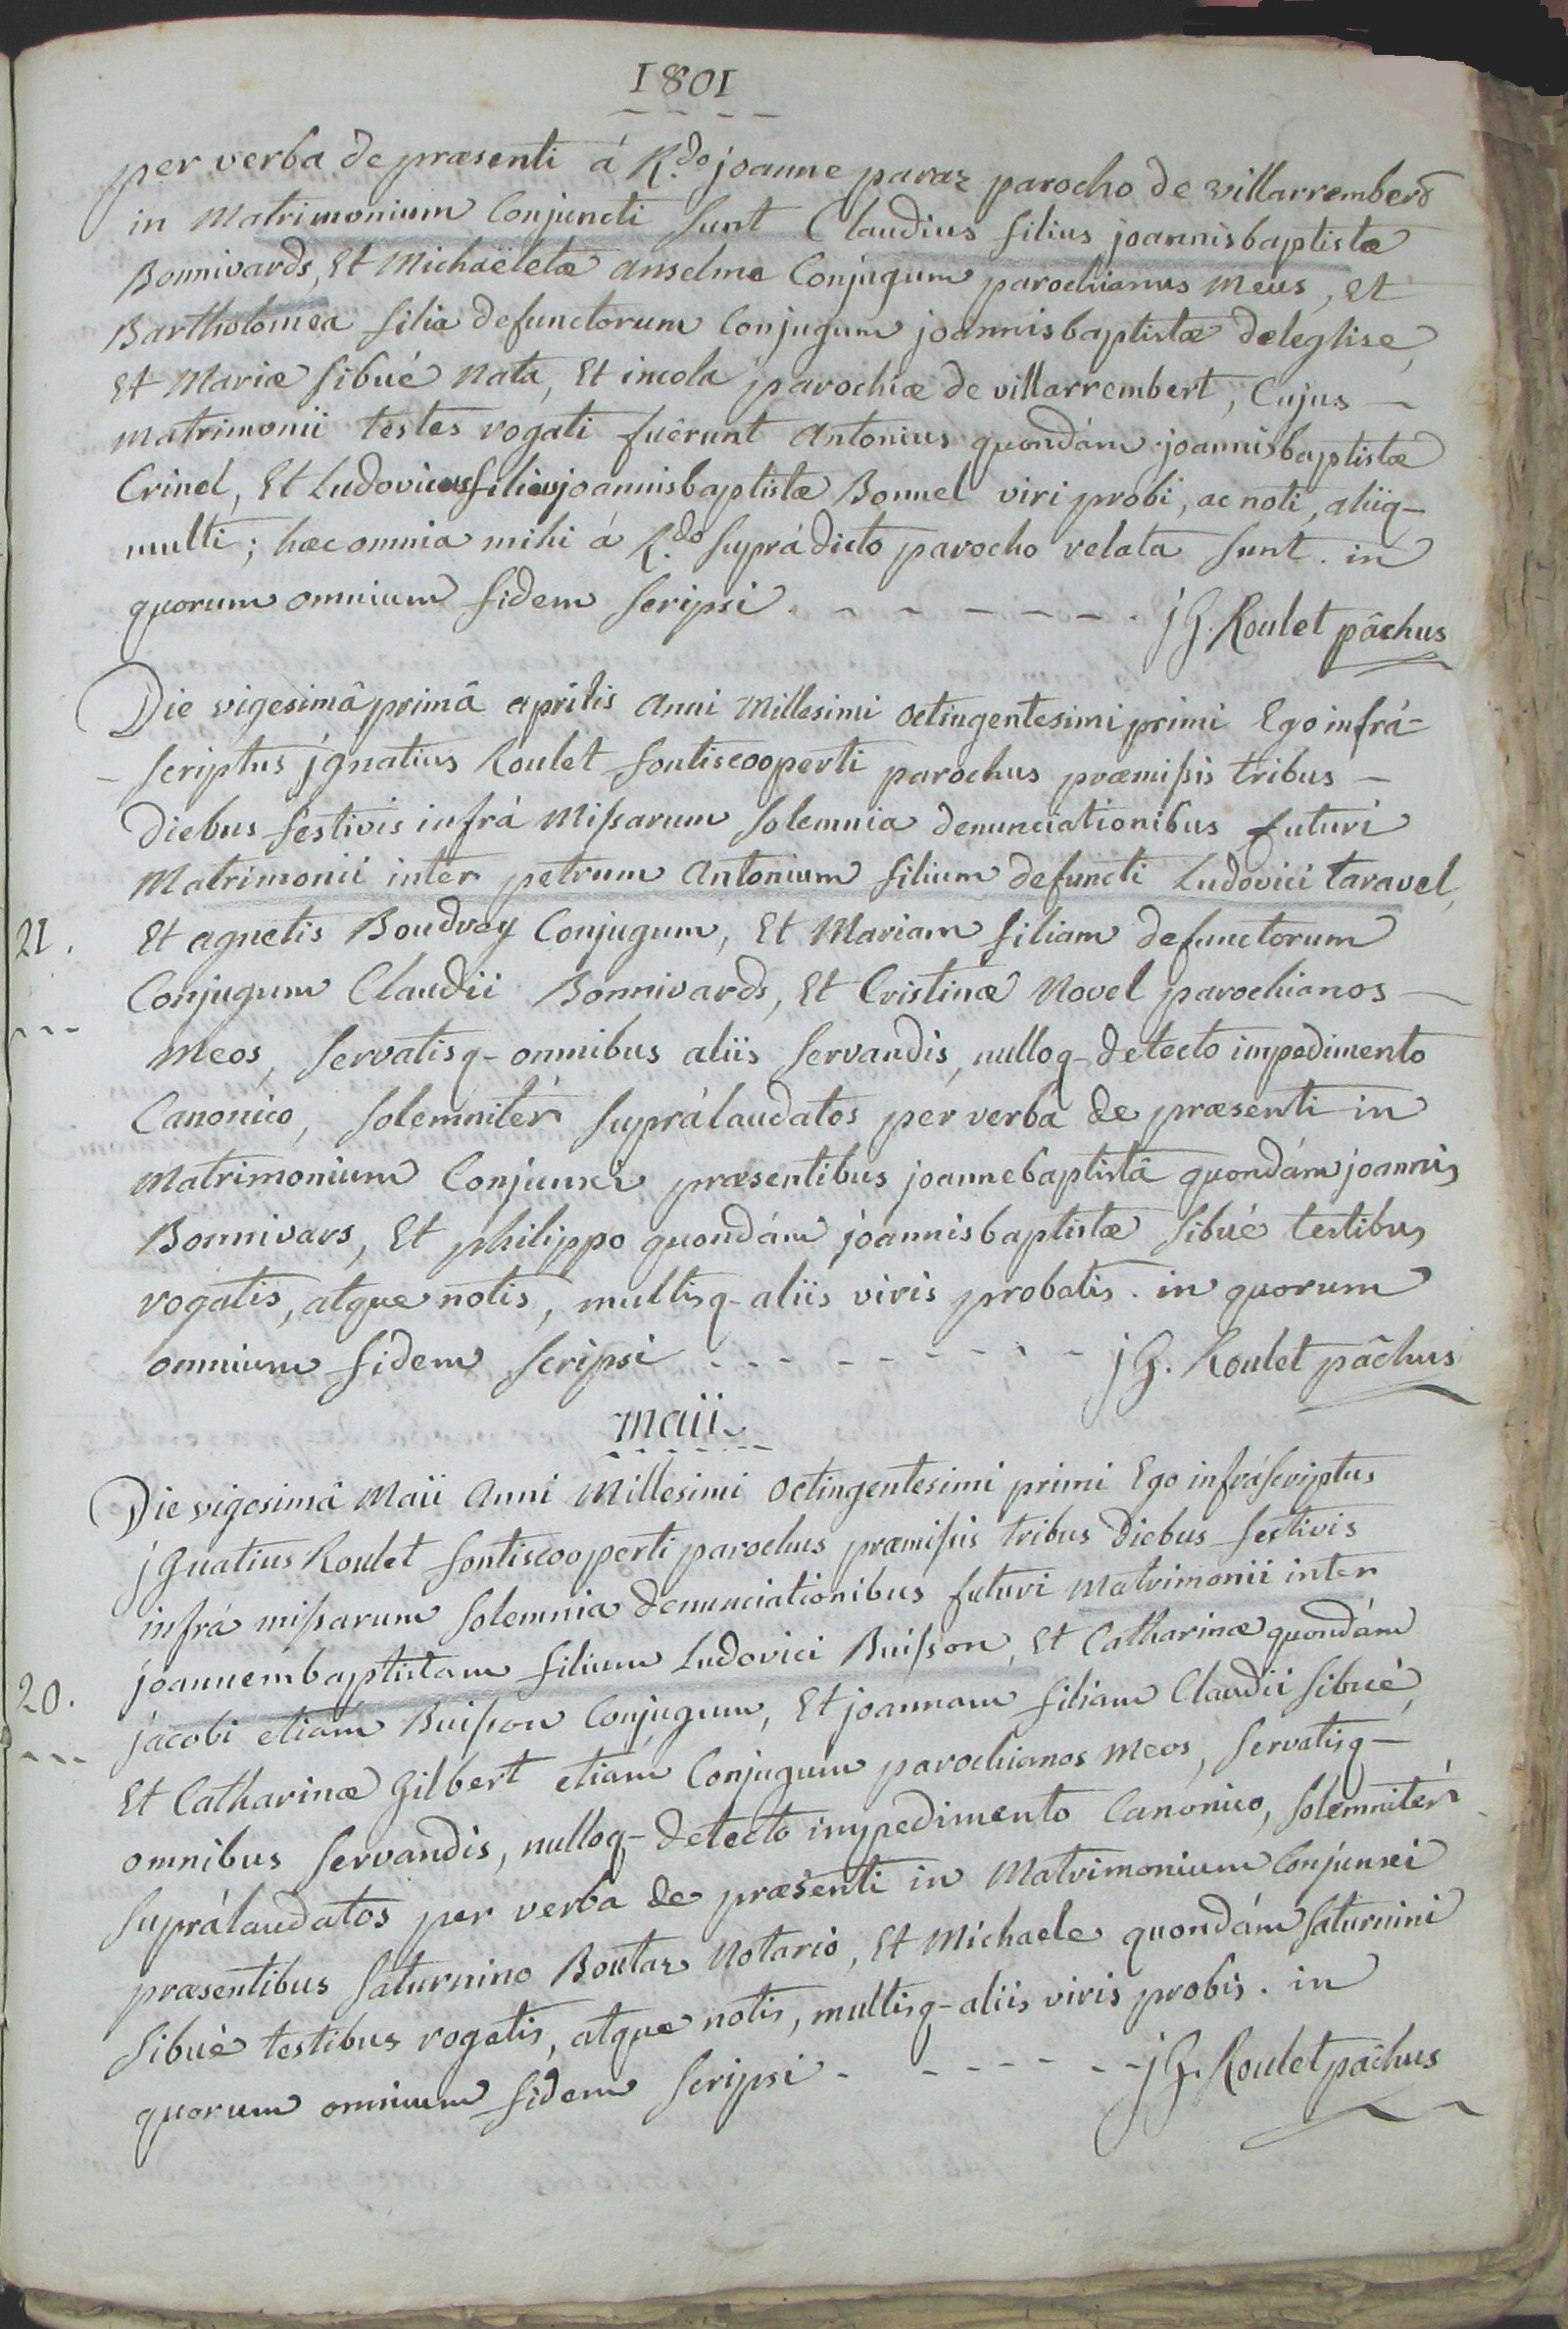 1801
per verba de præsenti á R.do joanne paraz parocho de villarremberd
in Matrimonium Conjuncti sunt Claudius filius joannisbaptistæ
Bonnivards, Et Michaëletæ anselme Conjugum parochianus meus, et
Bartholomea filia defunctorum Conjugum joannisbaptistæ deleglise,
et Mariæ sibué nata, Et incola parochiæ de villarrembert, Cujus —
matrimonii testes rogati fuêrunt Antonius quondám joannisbaptistæ
Crinel, Et Ludovicus filius joannisbaptistæ Bonnel viri probi, ac noti, aliiq-
multi; hæc omnia mihi á R.do suprádicto parocho relata sunt. in
quorum omnium fidem scripsi. - - - - - - - jG. Roulet pâchus
Die vigesimâ primâ aprilis anni Millesimi octingentesimi primi Ego infrá-
- scriptus jgnatius Roulet fontiscooperti parochus præmissis tribus —
diebus festivis infrá Missarum solemnia denunciationibus futuri
Matrimonii inter petrum Antonium filium defuncti Ludovici taravel,
21. Et agnetis Boudrey Conjugum, Et Mariam filiam defunctorum
Conjugum Claudii Bonnivards, Et Cristinæ Novel parochianos —
meos, servatisq- omnibus aliis servandis, nulloq- detecto impedimento
Canonico, solemnitér suprálaudatos per verba de præsenti in
Matrimonium Conjunxi præsentibus joannebaptistâ quondám joannis
Bonnivars, Et philippo quondám joannisbaptistæ sibué testibus
rogatis, atque notis, multisq- aliis viris probatis. in quorum
omnium fidem scripsi - - - - - - - - - jG. Roulet pâchus
maii
Die vigesimâ Maii Anni Millesimi octingentesimi primi Ego infráscriptus
jgnatius Roulet fontiscooperti parochus præmissis tribus diebus festivis
infrá missarum solemnia denunciationibus futuri Matrimonii inter
joannembaptistam filium Ludovici Buisson, Et Catharinæ quondám
20. jacobi etiam Buisson Conjugum, Et joannam filiam Claudii sibué,
Et Catharinæ gilbert etiam Conjugum parochianos meos, servatisq-
omnibus servandis, nulloq- detecto impedimento Canonico, solemnitér
suprálaudatos per verba de præsenti in Matrimonium Conjunxi
præsentibus saturnino Boutaz Notario, Et Michaele quondám saturnini
sibué testibus rogatis, atque notis, multisq- aliis viris probis. in
quorum omnium fidem scripsi - - - - - - jG. Roulet pâchus